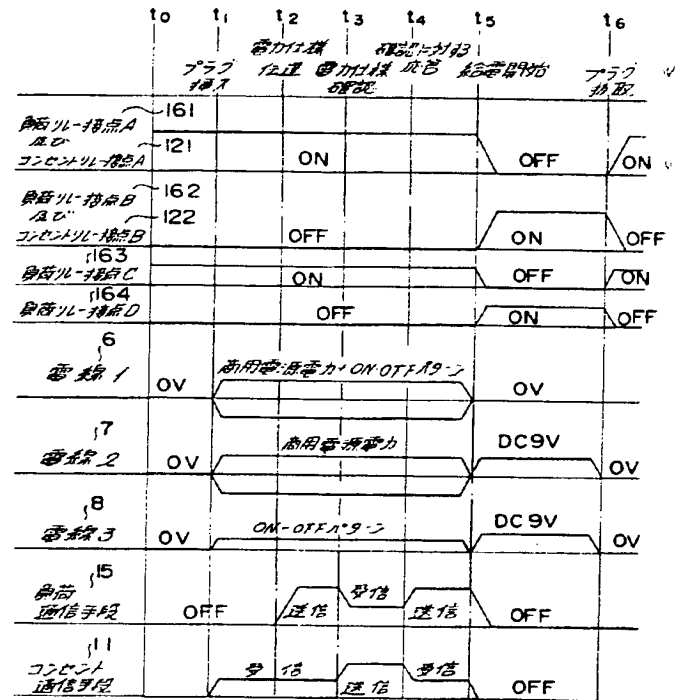 t0 t1 t2 t3 t4 t5 t6
プラグ挿入
電力仕様伝達
電力仕様確認
確認に対する応答
給電開始
プラグ抜取
161
負荷リレー接点A
及び
121
コンセントリレー接点A
ON OFF ON
162
負荷リレー接点B
及び
122
コンセントリレー接点B
OFF ON OFF
163
負荷リレー接点C
ON OFF ON
164
負荷リレー接点D
OFF ON OFF
6
電線1
0V 商用電源電力+ON-OFFパターン 0V
7
電線2
0V 商用電源電力 DC9V 0V
8
電線3
0V ON-OFFパターン DC9V 0V
15
負荷
通信手段
OFF 送信 受信 送信 OFF
11
コンセント
通信手段
受信 送信 受信 OFF